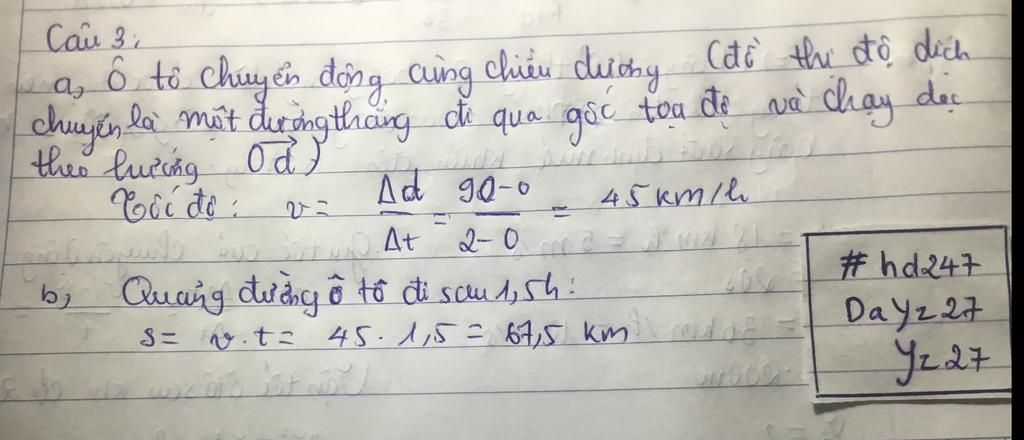 Câu 3:
a, Ô tô chuyển động cùng chiều dương (đồ thị độ dịch
chuyển là một đường thẳng đi qua gốc tọa độ và chạy dọc
theo hướng Od)
Tốc độ: v = Δd/Δt = 90-0/2-0 = 45 km/h
b, Quãng đường ô tô đi sau 1,5h:
s = v.t = 45.1,5 = 67,5 km
# hd247
DaYz27
Yz27